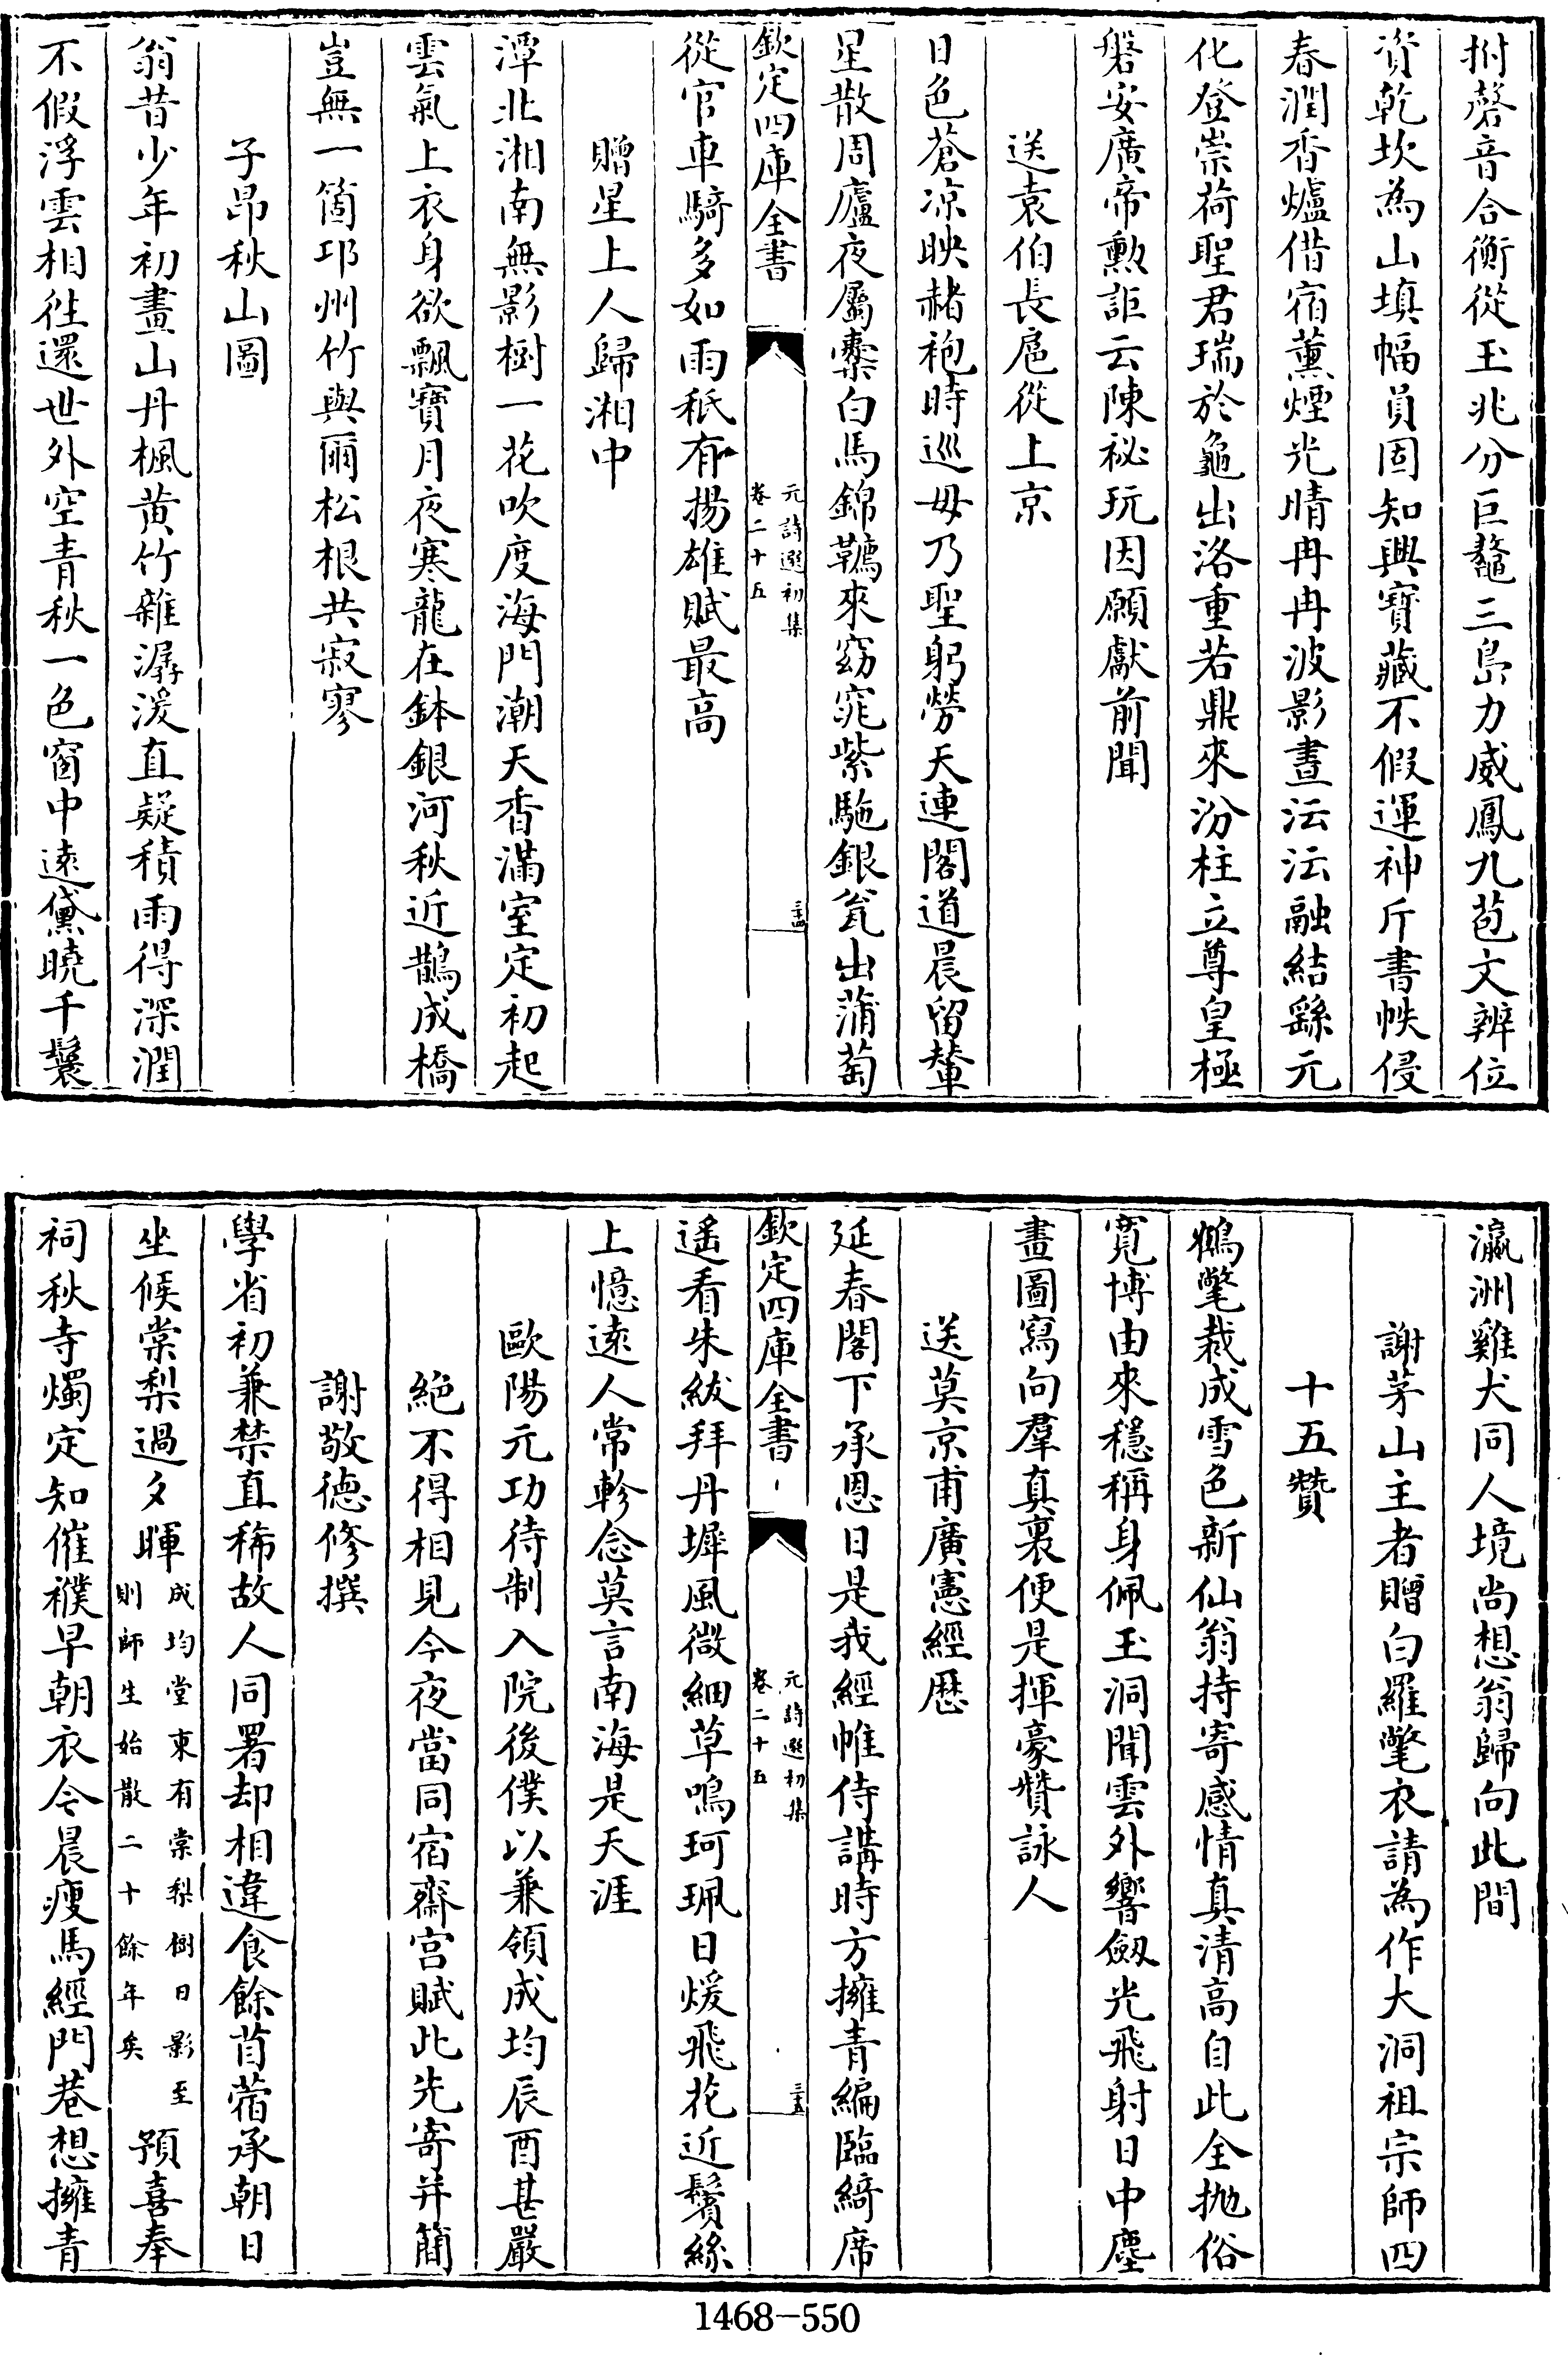 拊磬音合衡從玉兆分巨鼇三島力威鳳九苞文辨位
資乾坎為山填幅員固知興寶藏不假運神斤書帙侵
春潤香爐借宿薰煙光晴冉冉波影晝沄沄融結繇元
化登崇荷聖君瑞於龜出洛重若鼎來汾柱立尊皇極
磐安廣帝勲詎云陳祕玩因願獻前聞
送袁伯長扈從上京
日色蒼凉映赭袍時巡毋乃聖躬勞天連閣道晨留輦
星散周廬夜屬櫜白馬錦韉來窈窕紫駞銀瓮出蒲萄
欽定四庫全書
元詩選初集
卷二十五
三四
從官車騎多如雨秖有揚雄賦最高
贈星上人歸湘中
潭北湘南無影樹一花吹度海門潮天香滿室定初起
雲氣上衣身欲飄寶月夜寒龍在鉢銀河秋近鵲成橋
豈無一箇邛州竹與爾松根共寂寥
子昂秋山圖
翁昔少年初畫山丹楓黄竹雜潺湲直疑積雨得深潤
不假浮雲相往還世外空青秋一色窗中遠黛曉千鬟
瀛洲雞犬同人境尚想翁歸向此間
謝茅山主者贈白羅氅衣請為作大洞祖宗師四
十五贊
鶴氅裁成雪色新仙翁持寄感情真清高自此全抛俗
寛博由來穩稱身佩玉洞聞雲外響劔光飛射日中塵
畫圖寫向羣真裏便是揮豪贊詠人
送莫京甫廣憲經歴
延春閣下承恩日是我經帷侍講時方擁青編臨綺席
欽定四庫全書
元詩選初集
卷二十五
三五
遥看朱紱拜丹墀風微細草鳴珂珮日煖飛花近鬢絲
上憶逺人常軫念莫言南海是天涯
歐陽元功待制入院後僕以兼領成均辰酉甚嚴
絶不得相見今夜當同宿齋宫賦此先寄并簡
謝敬德修撰
學省初兼禁直稀故人同署却相違食餘苜蓿承朝日
坐候棠梨過夕暉成均堂東有棠梨樹日影至則師生始散二十餘年矣預喜奉
祠秋寺燭定知催襆早朝衣今晨瘦馬經門巷想擁青
1468-550